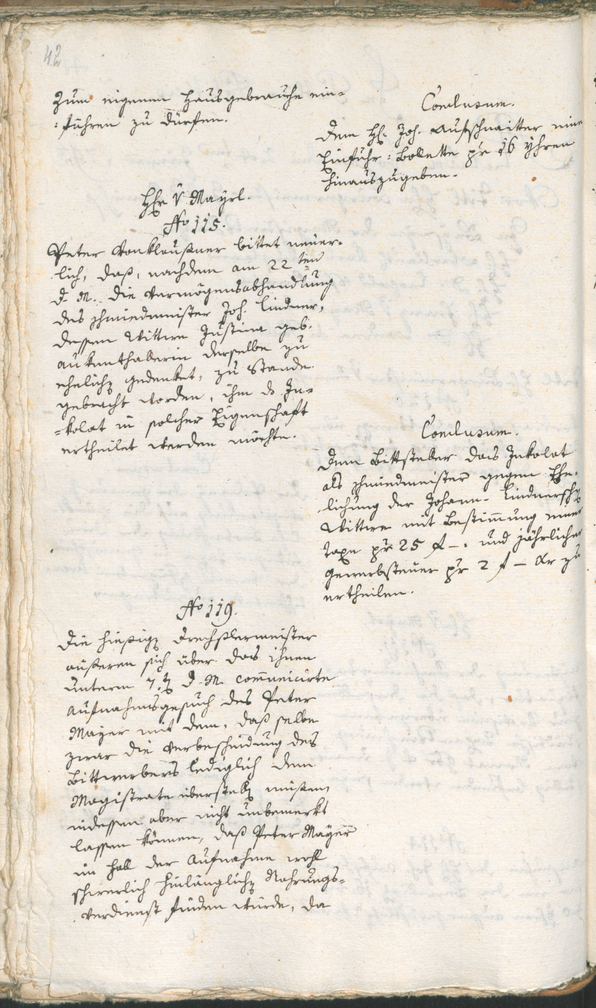 42
Zum eigenen Hausgebrauche ein-
führen zu dürfen.
Conclusum.
Dem H. Joh. Aufschnaitter eine
Einfuhr: Bollette pr 16 Yhren
hinauszugeben.
Hr v Mayrl.
No 115.
Peter Vonklausner bittet neuer-
lich, daß, nachdem am 22ten
d. M. die Vermögensabhandlung
des Schmiedmeister Joh. Lindner,
dessen Wittwe Justina geb.
derselbe zu
ehelichen gedenket, zu Stande
gebracht worden, ihm ds In-
kolat in solcher Eigenschaft
ertheilet werden möchte.
Conclusum.
Dem Bittsteller das Inkolat
als Schmiedmeister gegen Ehe-
lichung der Johann Lindnersch
Wittwe mit Bestimmung einer
Taxe pr 25 f –. und jährlicher
Gewerbsteuer pr 2 f – kr zu
ertheilen.
No 119.
Die hiesigen Drechslermeister
äußeren sich über das ihnen
unterm 7. d. M. communicirte
Aufnahmsgesuch des Peter
Mayer mit dem, daß selbe
zwar die Verbescheidung des
Bittwerbers lediglich dem
Magistrate überstellen müßen
indessen aber nicht unbemerkt
lassen können, daß Peter Mayer
im Fall der Aufnahme wohl
schwerlich hinlänglichen Nahrungs-
verdienst finden würde, da